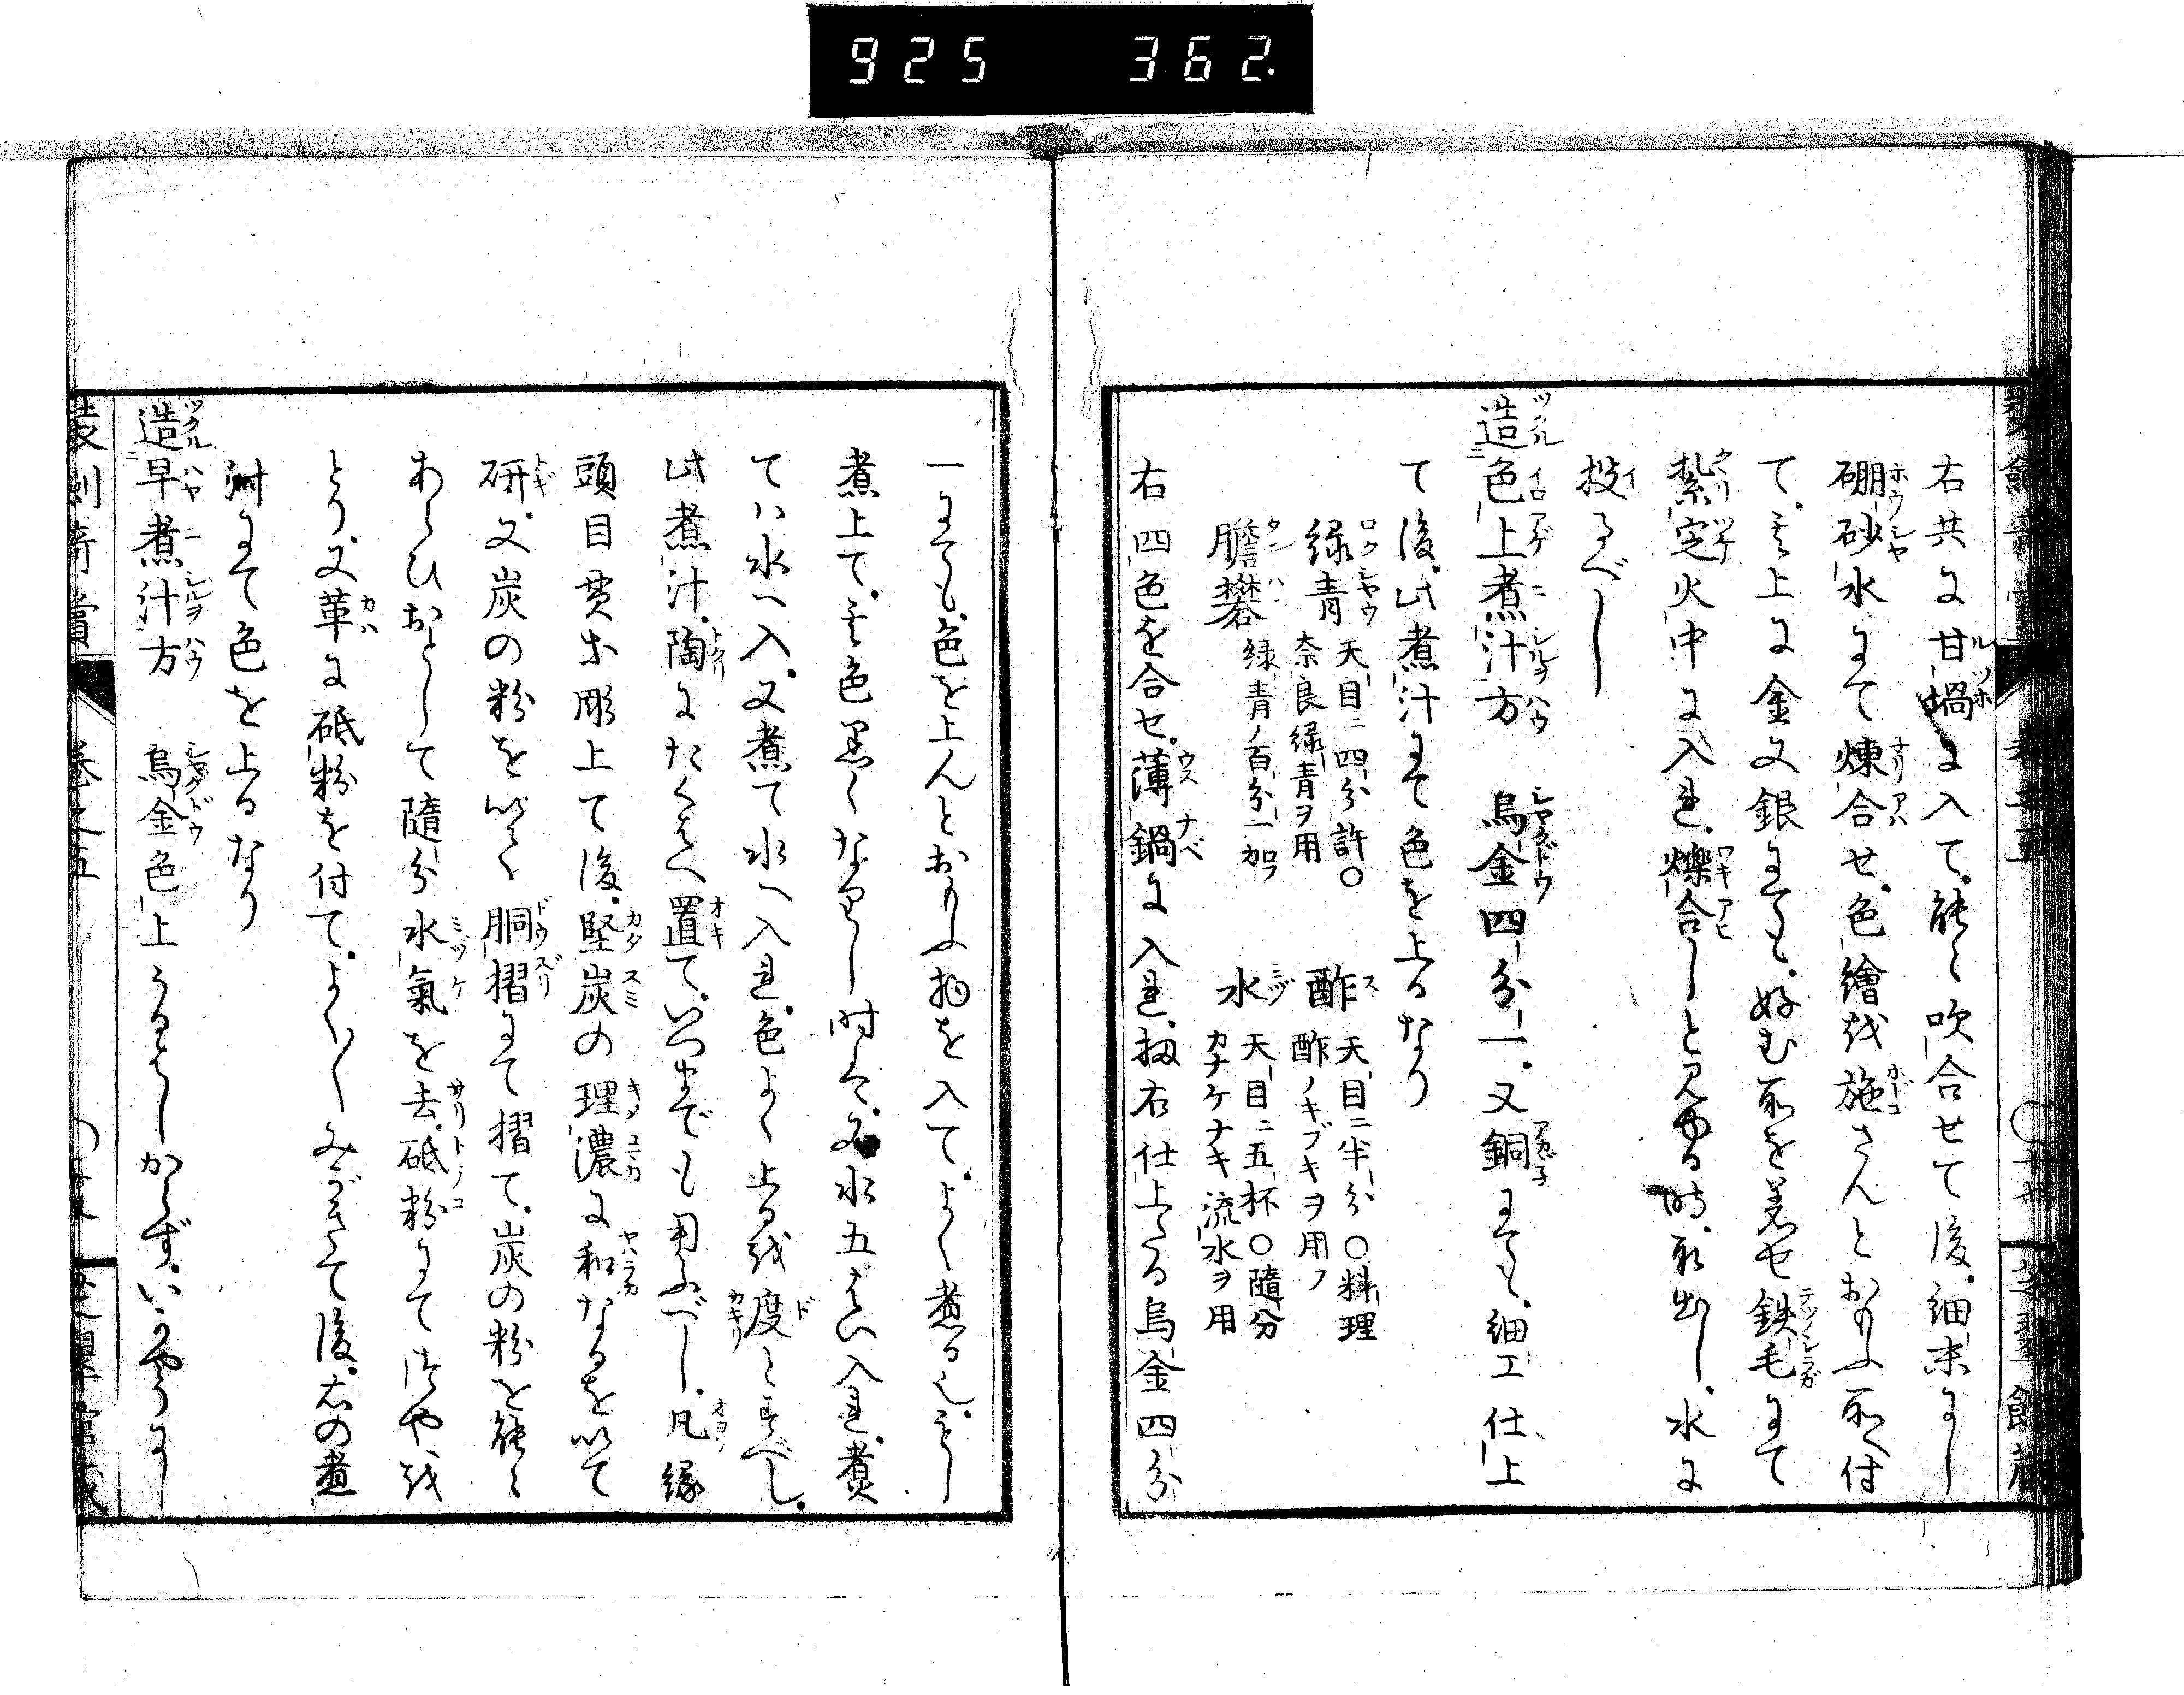 925 362.
右共に甘堝に入て、能く吹合せて後、細末にし
硼砂水にて煉合せ、色繪を施さんとおもふ所へ付
て、其上に金又銀にても、好む所を着せ鉄毛にて
紮定火中に入れ、爍合しと見ゆる時、取出し、水に
投るべし
造色上煮汁方 烏金四分一、又銅にても、細工仕上
て後、此煮汁にて色を上るなり
緑青 天目ニ四分許○奈良緑青ヲ用
酢 天目ニ半分○料理酢ノキブキヲ用フ
膽礬 緑青ノ百分一加フ
水 天目ニ五杯○隨分カナケナキ流水ヲ用
右四色を合セ、薄鍋に入れ、扨右仕上たる烏金四分
一にても、色を上んとおもふ物を入て、よく煮る也、もし
煮上て、其色黒くなりし時は、又水五はい入れ、煮
てハ水へ入、又煮て水へ入れ、色よく上るを度とすべし、
此煮汁、陶にたくはへ置て、いつまでも用ふべし、凡縁
頭目貫等彫上て後、堅炭の理濃に和なるを以て
研、又炭の粉を以て胴摺にて摺て、炭の粉を能く
あらひおとして隨分水氣を去、砥粉にてつやを
とり、又革に砥粉を付て、よく〳〵みがきて後、右の煮
汁にて色を上るなり
造早煮汁方 烏金色上うるはしからず、いかやうにし
装劍奇賞 巻之五